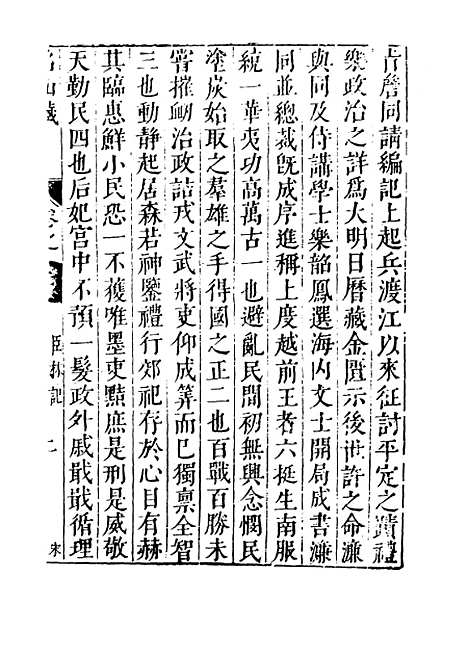 肯詹同請編記上起兵渡江以來征討平定之蹟禮
樂政治之詳爲大明日曆藏金匱示後世許之命濂
與同及侍講學士樂韶鳳選海內文士開局成書濂
同並總裁旣成序進稱上度越前王者六挺生南服
統一華夷功高萬古一也避亂民間初無興念憫民
塗炭始取之羣雄之手得國之正二也百戰百勝未
嘗摧衂治政詰戎文武將吏仰成筭而已獨禀全智
三也動靜起居森若神鑒禮行郊祀存於心目有赫
其臨惠鮮小民恐一不獲唯墨吏黠庶是刑是威敬
天勤民四也后妃宮中不預一髮政外戚戢戢循理
名山藏
臣林記 二